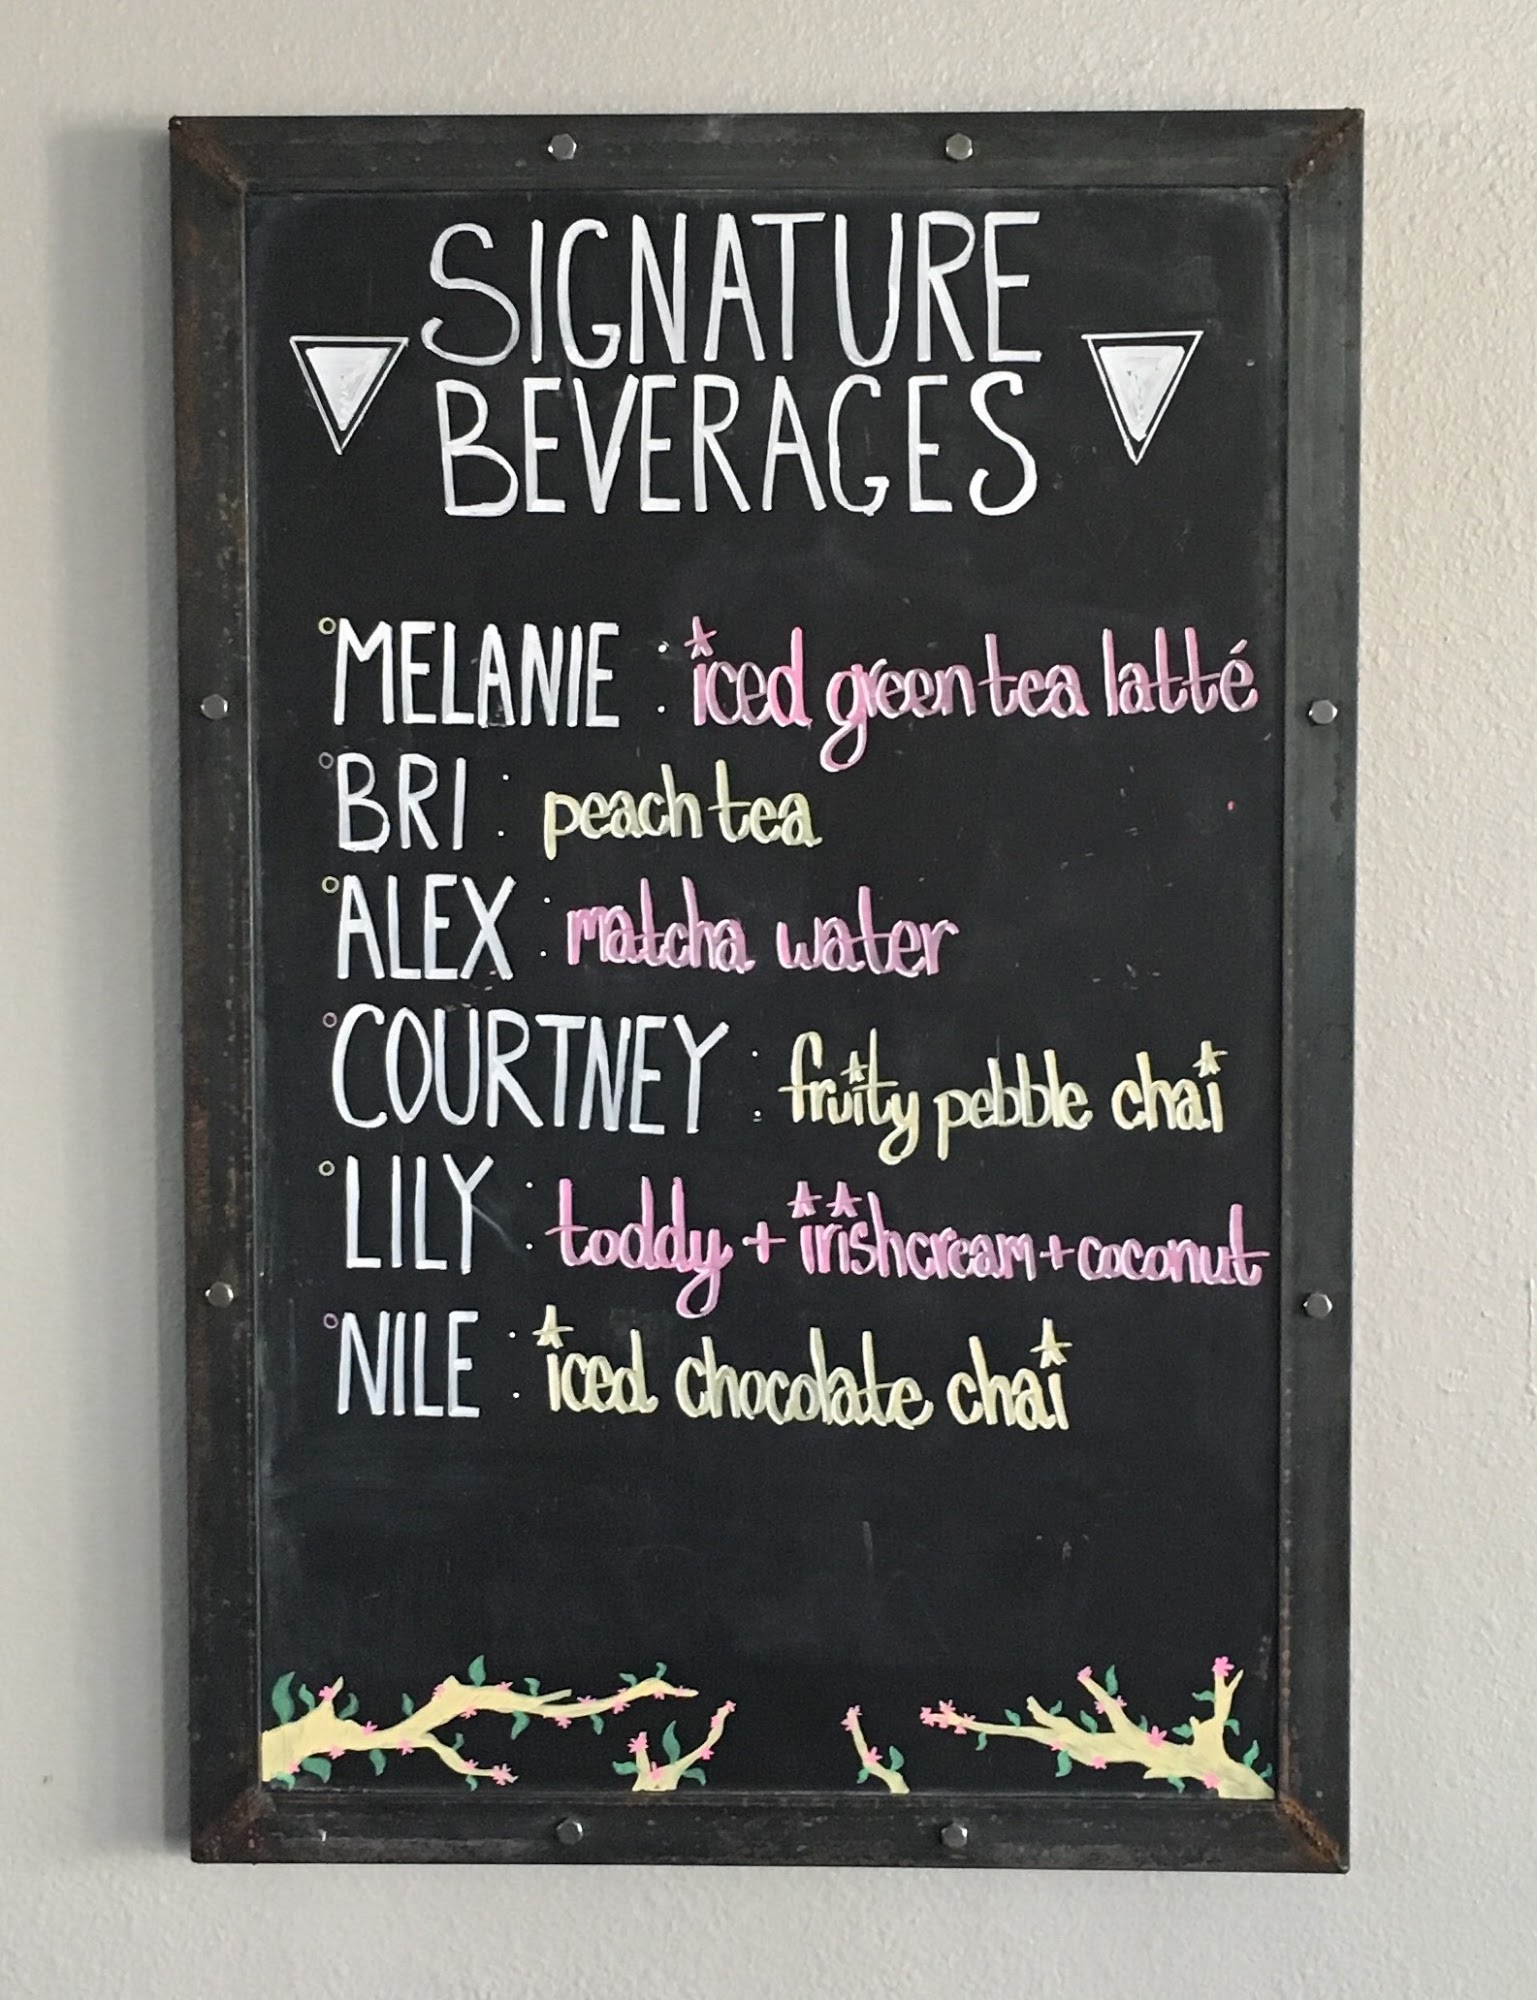 SIGNATURE
BEVERAGES
MELANIE : iced green tea latté
BRI : peach tea
ALEX : matcha water
COURTNEY : fruity pebble chai
LILY : toddy + irish cream + coconut
NILE : iced chocolate chai